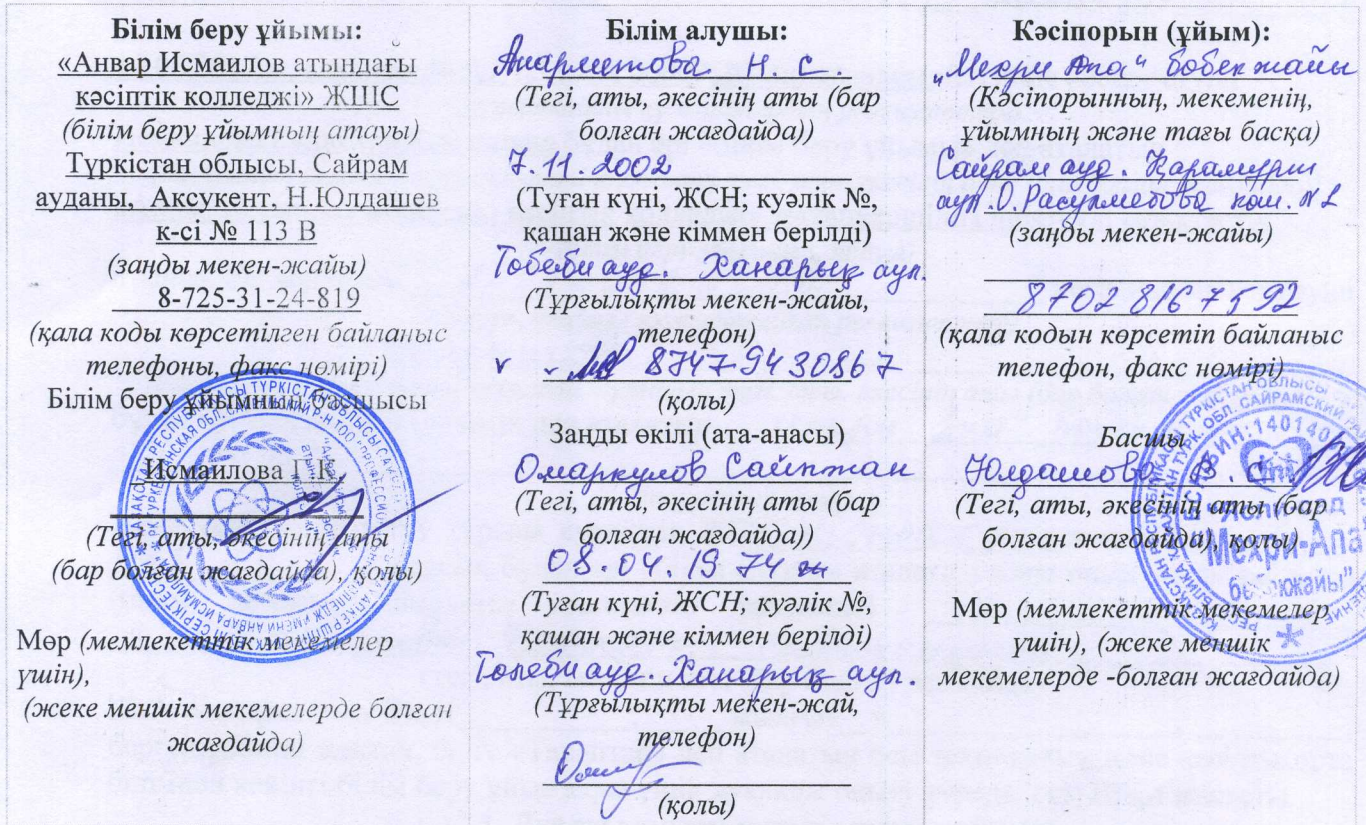 Білім беру ұйымы:
«Анвар Исмаилов атындағы
кәсіптік колледжі» ЖШС
(білім беру ұйымның атауы)
Түркістан облысы, Сайрам
ауданы, Аксукент, Н.Юлдашев
к-сі № 113 В
(заңды мекен-жайы)
8-725-31-24-819
(қала коды көрсетілген байланыс
телефоны, факс нөмірі)
Білім беру ұйымның басшысы
Исмаилова Г.К.
(Тегі, аты, әкесінің аты
(бар болған жағдайда), қолы)
Мөр (мемлекеттік мекемелер
үшін),
(жеке меншік мекемелерде болған
жағдайда)
Білім алушы:
Анарметова Н. С
(Тегі, аты, әкесінің аты (бар
болған жағдайда))
7.11.2002
(Туған күні, ЖСН; куәлік №,
қашан және кіммен берілді)
Төбеби ауд. Ханарық аул.
(Тұрғылықты мекен-жайы,
телефон)
v - 87479430867
(қолы)
Заңды өкілі (ата-анасы)
Омаркулов Сайпжан
(Тегі, аты, әкесінің аты (бар
болған жағдайда))
08.04.1974 ж
(Туған күні, ЖСН; куәлік №,
қашан және кіммен берілді)
Төлеби ауд. Ханарық аул.
(Тұрғылықты мекен-жай,
телефон)
(қолы)
Кәсіпорын (ұйым):
„Мехри Апа" бөбекжайы
(Кәсіпорынның, мекеменің,
ұйымның және тағы басқа)
Сайрам ауд. Қарамұрт
аул. О.Расулметова көш. №1
(заңды мекен-жайы)
87028167592
(қала кодын көрсетіп байланыс
телефон, факс нөмірі)
Басшы
Юлдашова В. с
(Тегі, аты, әкесінің аты (бар
болған жағдайда), қолы)
Мехри-Апа
бөбекжайы"
Мөр (мемлекеттік мекемелер
үшін), (жеке меншік
мекемелерде -болған жағдайда)